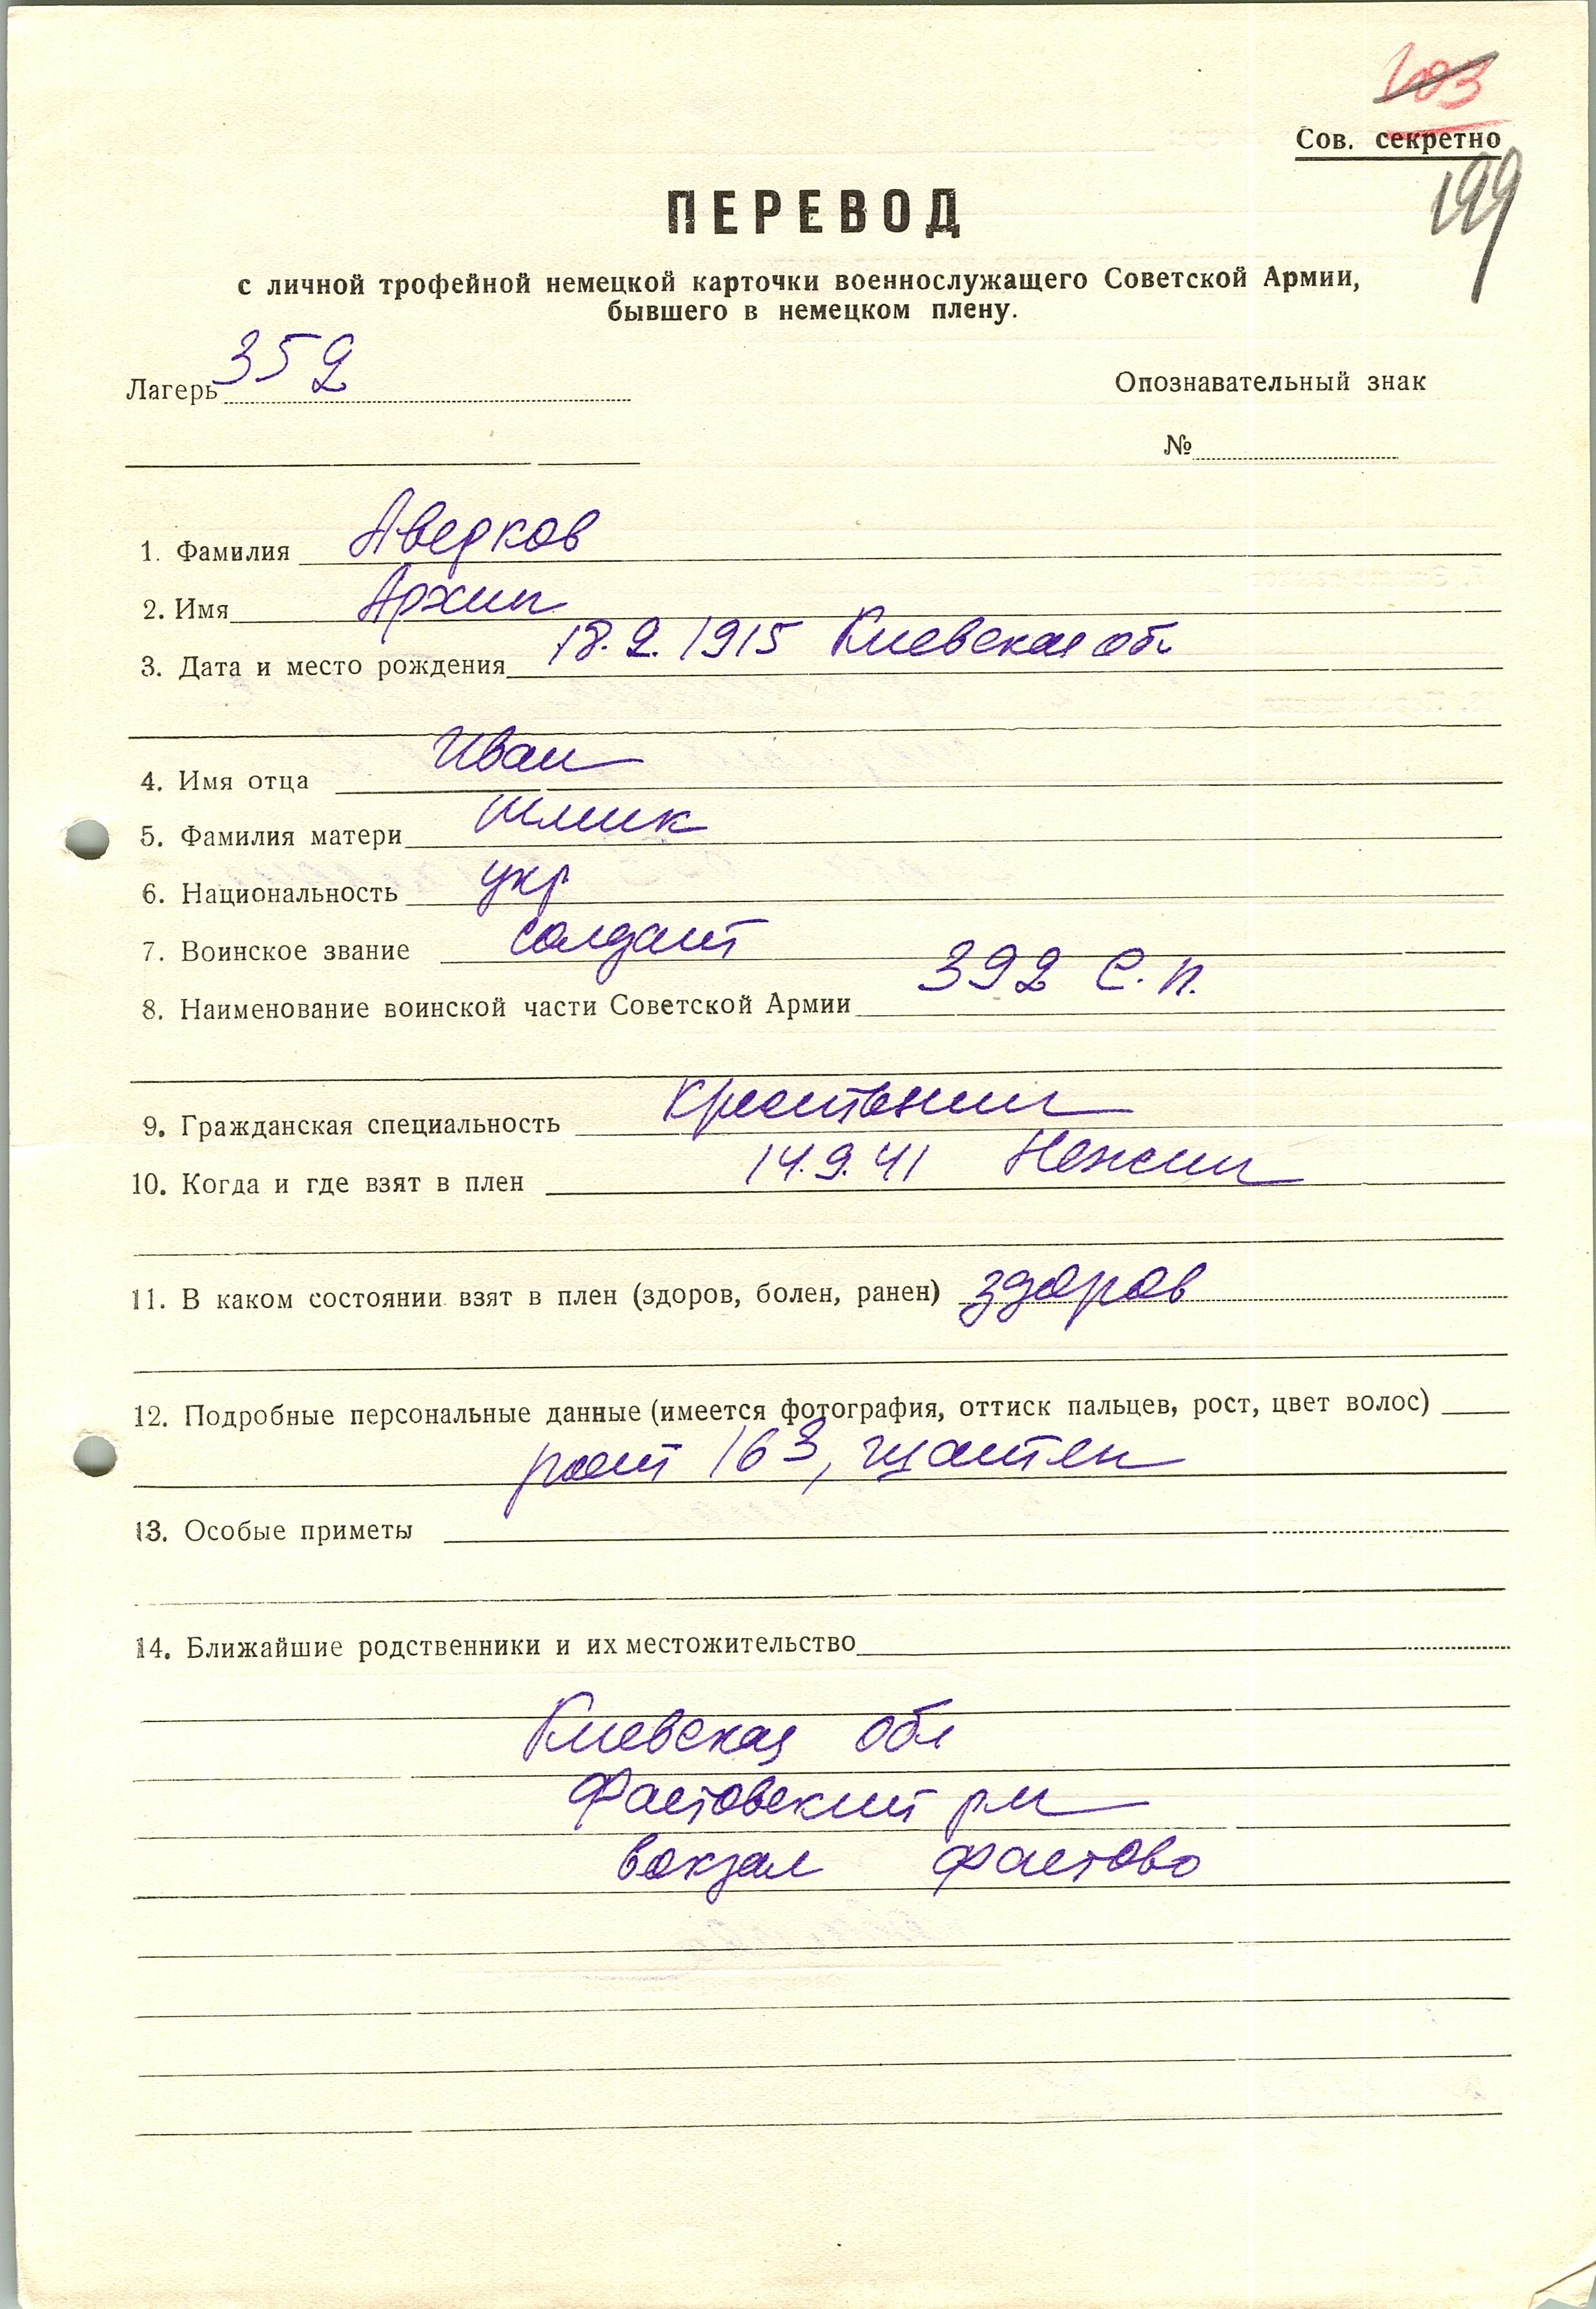 103
Сов. секретно
199
ПЕРЕВОД
с личной трофейной немецкой карточки военнослужащего Советской Армии,
бывшего в немецком плену.
Лагерь 352
Опознавательный знак
№
1. Фамилия Аведков
2. Имя Архип
3. Дата и место рождения 18.2.1915 Киевская об.
4. Имя отца Иван
5. Фамилия матери
6. Национальность укр
7. Воинское звание солдат
8. Наименование воинской части Советской Армии 392 С.п.
9. Гражданская специальность крестьянин
10. Когда и где взят в плен 14.9.41 Нежин
11. В каком состоянии взят в плен (здоров, болен, ранен) здоров
12. Подробные персональные данные (имеется фотография, оттиск пальцев, рост, цвет волос)
рост 163,
13. Особые приметы
14. Ближайшие родственники и их местожительство
Киевская обл
Фастовский р-н
вокзал Фастово